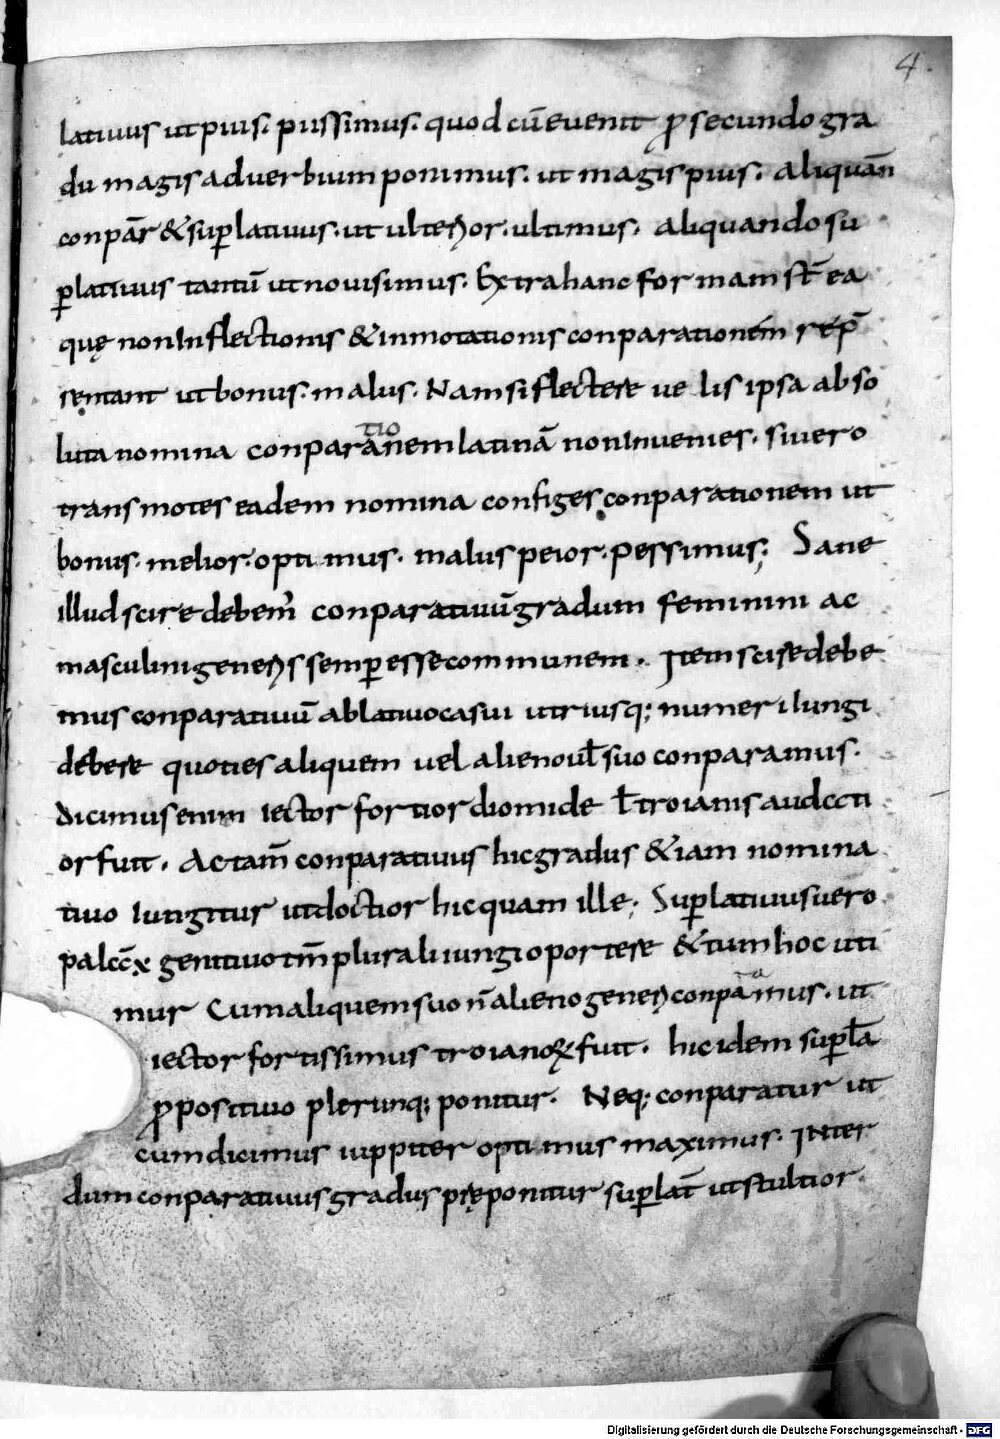 4.
latiuus ut pius. piissimus. quod cū euenit ꝓ secundo gra
du magis aduerbium ponimus. ut magis pius. aliquān
conpār & suꝑlatiuus. ut ulterior. ultimus. aliquando su
ꝑlatiuus tantū ut nouisimus. Extra hanc formam st̄ ea
quę non inflectionis & inmotationis conparationem rep̄
sentant ut bonus. malus. Nam si flectere uelis ipsa abso
luta nomina conparationem latinā non inuenies. si uero
transmotes eadem nomina configes conparationem ut
bonus. melior. optimus. malus peior. pessimus; Sane
illud scire debem᾽ conparatiuū gradum feminini ac
masculini generis semꝑ esse communem. Item scire debe
mus conparatiuū ablatiuo casui utriusq; numeri iungi
debere quoties aliquem uel alieno uł suo conparamus.
dicimus enim iector fortior diomide ł troianis audacti
or fuit. Ac tam̄ conparatiuus hic gradus & iam nomina
tiuo iungitur ut doctior hic quam ille; Suꝑlatiuus uero
genitiuo tm̄ plurali iungi oportere & tum hoc uti
mur Cum aliquem suo n̄ alieno generi conparamus. ut
iector fortissimus troianoꝝ fuit. hic idem suꝑla
ꝓ positiuo plerunq; ponitur. Neq; conparatur ut
cum dicimus iuppiter optimus maximus. Inter
dum conparatiuus gradus pręponitur suꝑlat̄ ut stultior
Digitalisierung gefördert durch die Deutsche Forschungsgemeinschaft - DFG